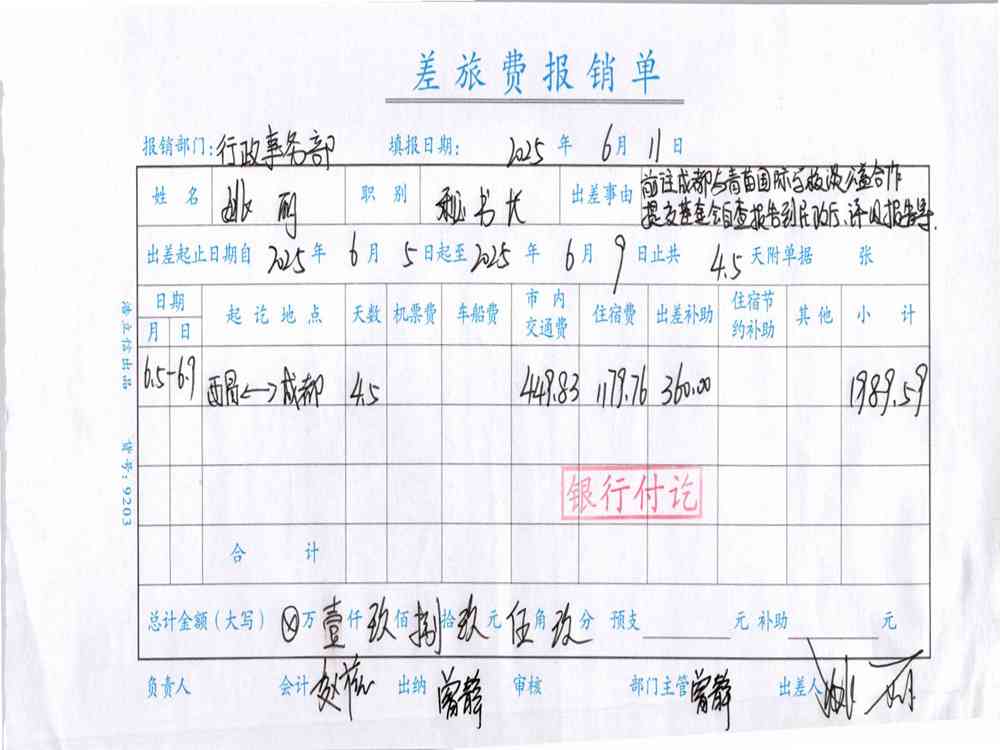 差旅费报销单
报销部门：行政事务部 填报日期： 2025 年 6月 11日
姓名 姚丽 职别 秘书长 出差事由 前往成都与青苗国际学校谈公益合作
提交基金会自查报告到民政厅、评估报告等.
出差起止日期自 2025年 6月 5日起至 2025 年 6月 9日止共 4.5 天附单据 张
日期 起讫地点 天数 机票费 车船费 市内交通费 住宿费 出差补助 住宿节约补助 其他 小计
月 日
6.5-6.9 西昌<->成都 4.5 449.83 1179.76 360.00 1989.59
银行付讫
合计
总计金额（大写） ⊗万 壹仟 玖佰 捌拾 玖元 伍角 玖分 预支 元 补助 元
负责人 会计 出纳 曾静 审核 部门主管 曾静 出差人 姚丽
浩立信出品 货号：9203